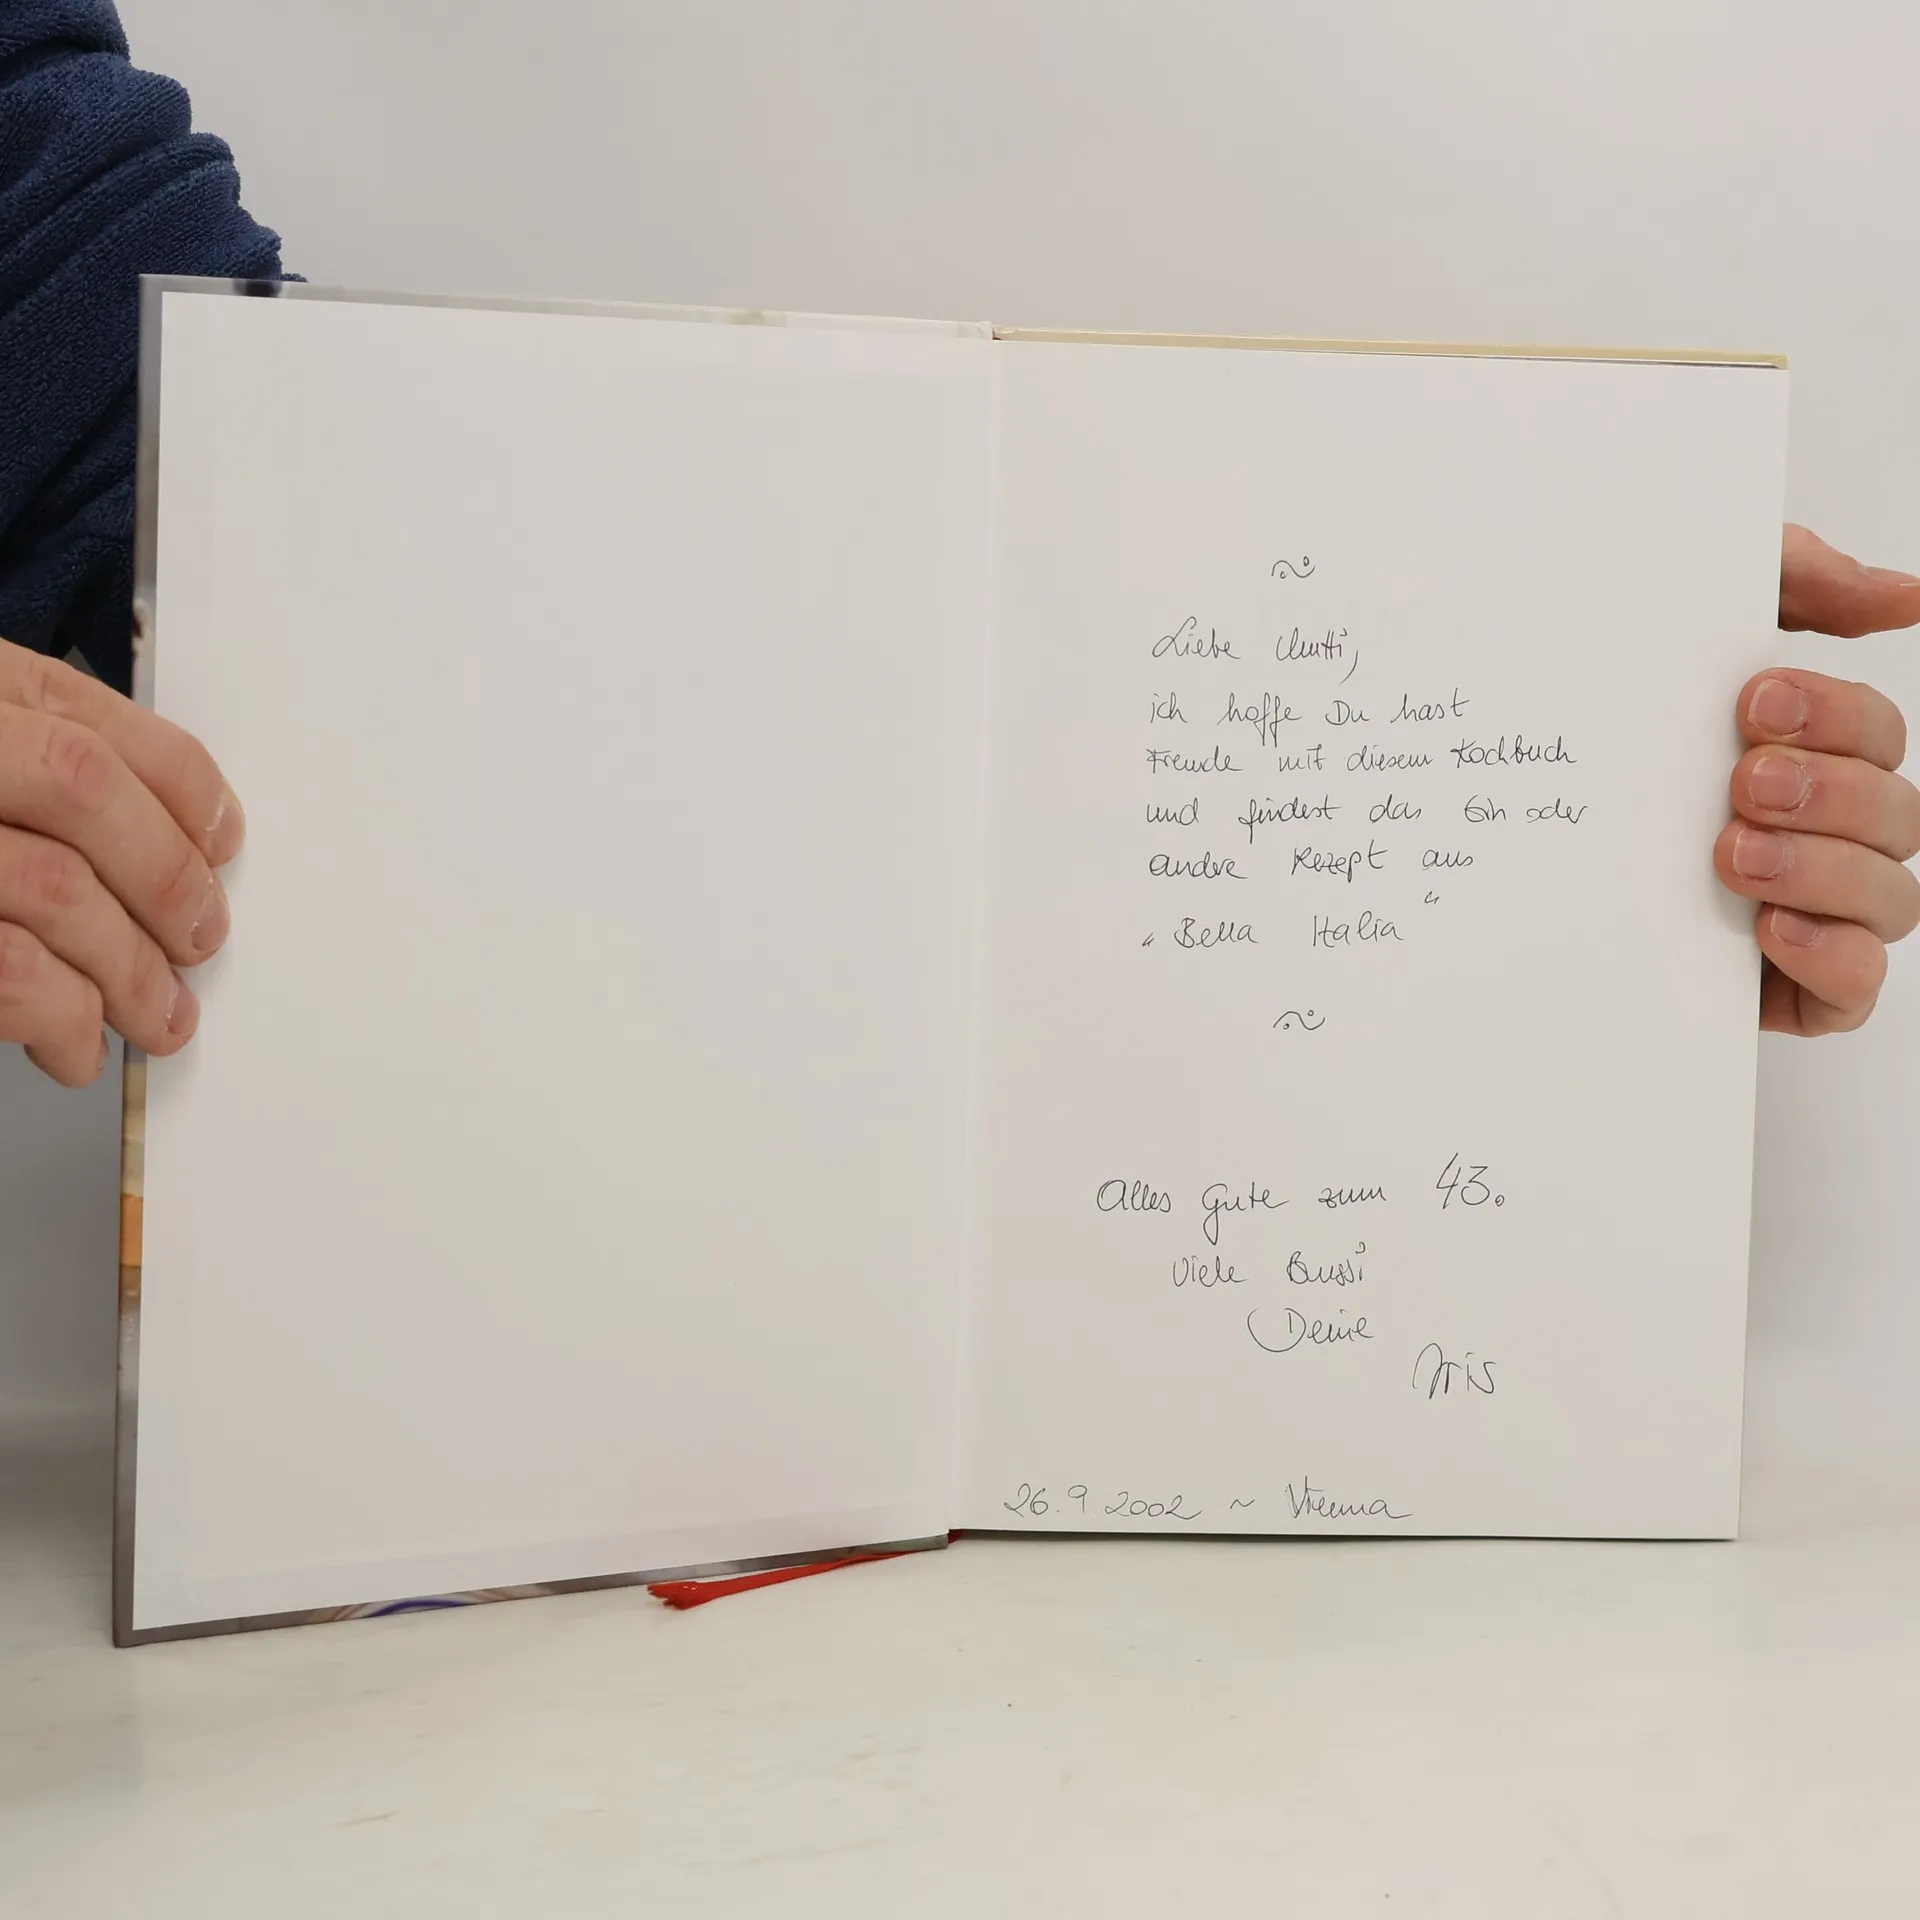 Liebe Mutti,
ich hoffe Du hast
Freude mit diesem Kochbuch
und findest das Ein oder
andre Rezept aus
„Bella Italia"
Alles Gute zum 43.
Viele Bussi
Deine
Iris
26.9.2002 ~ Vienna